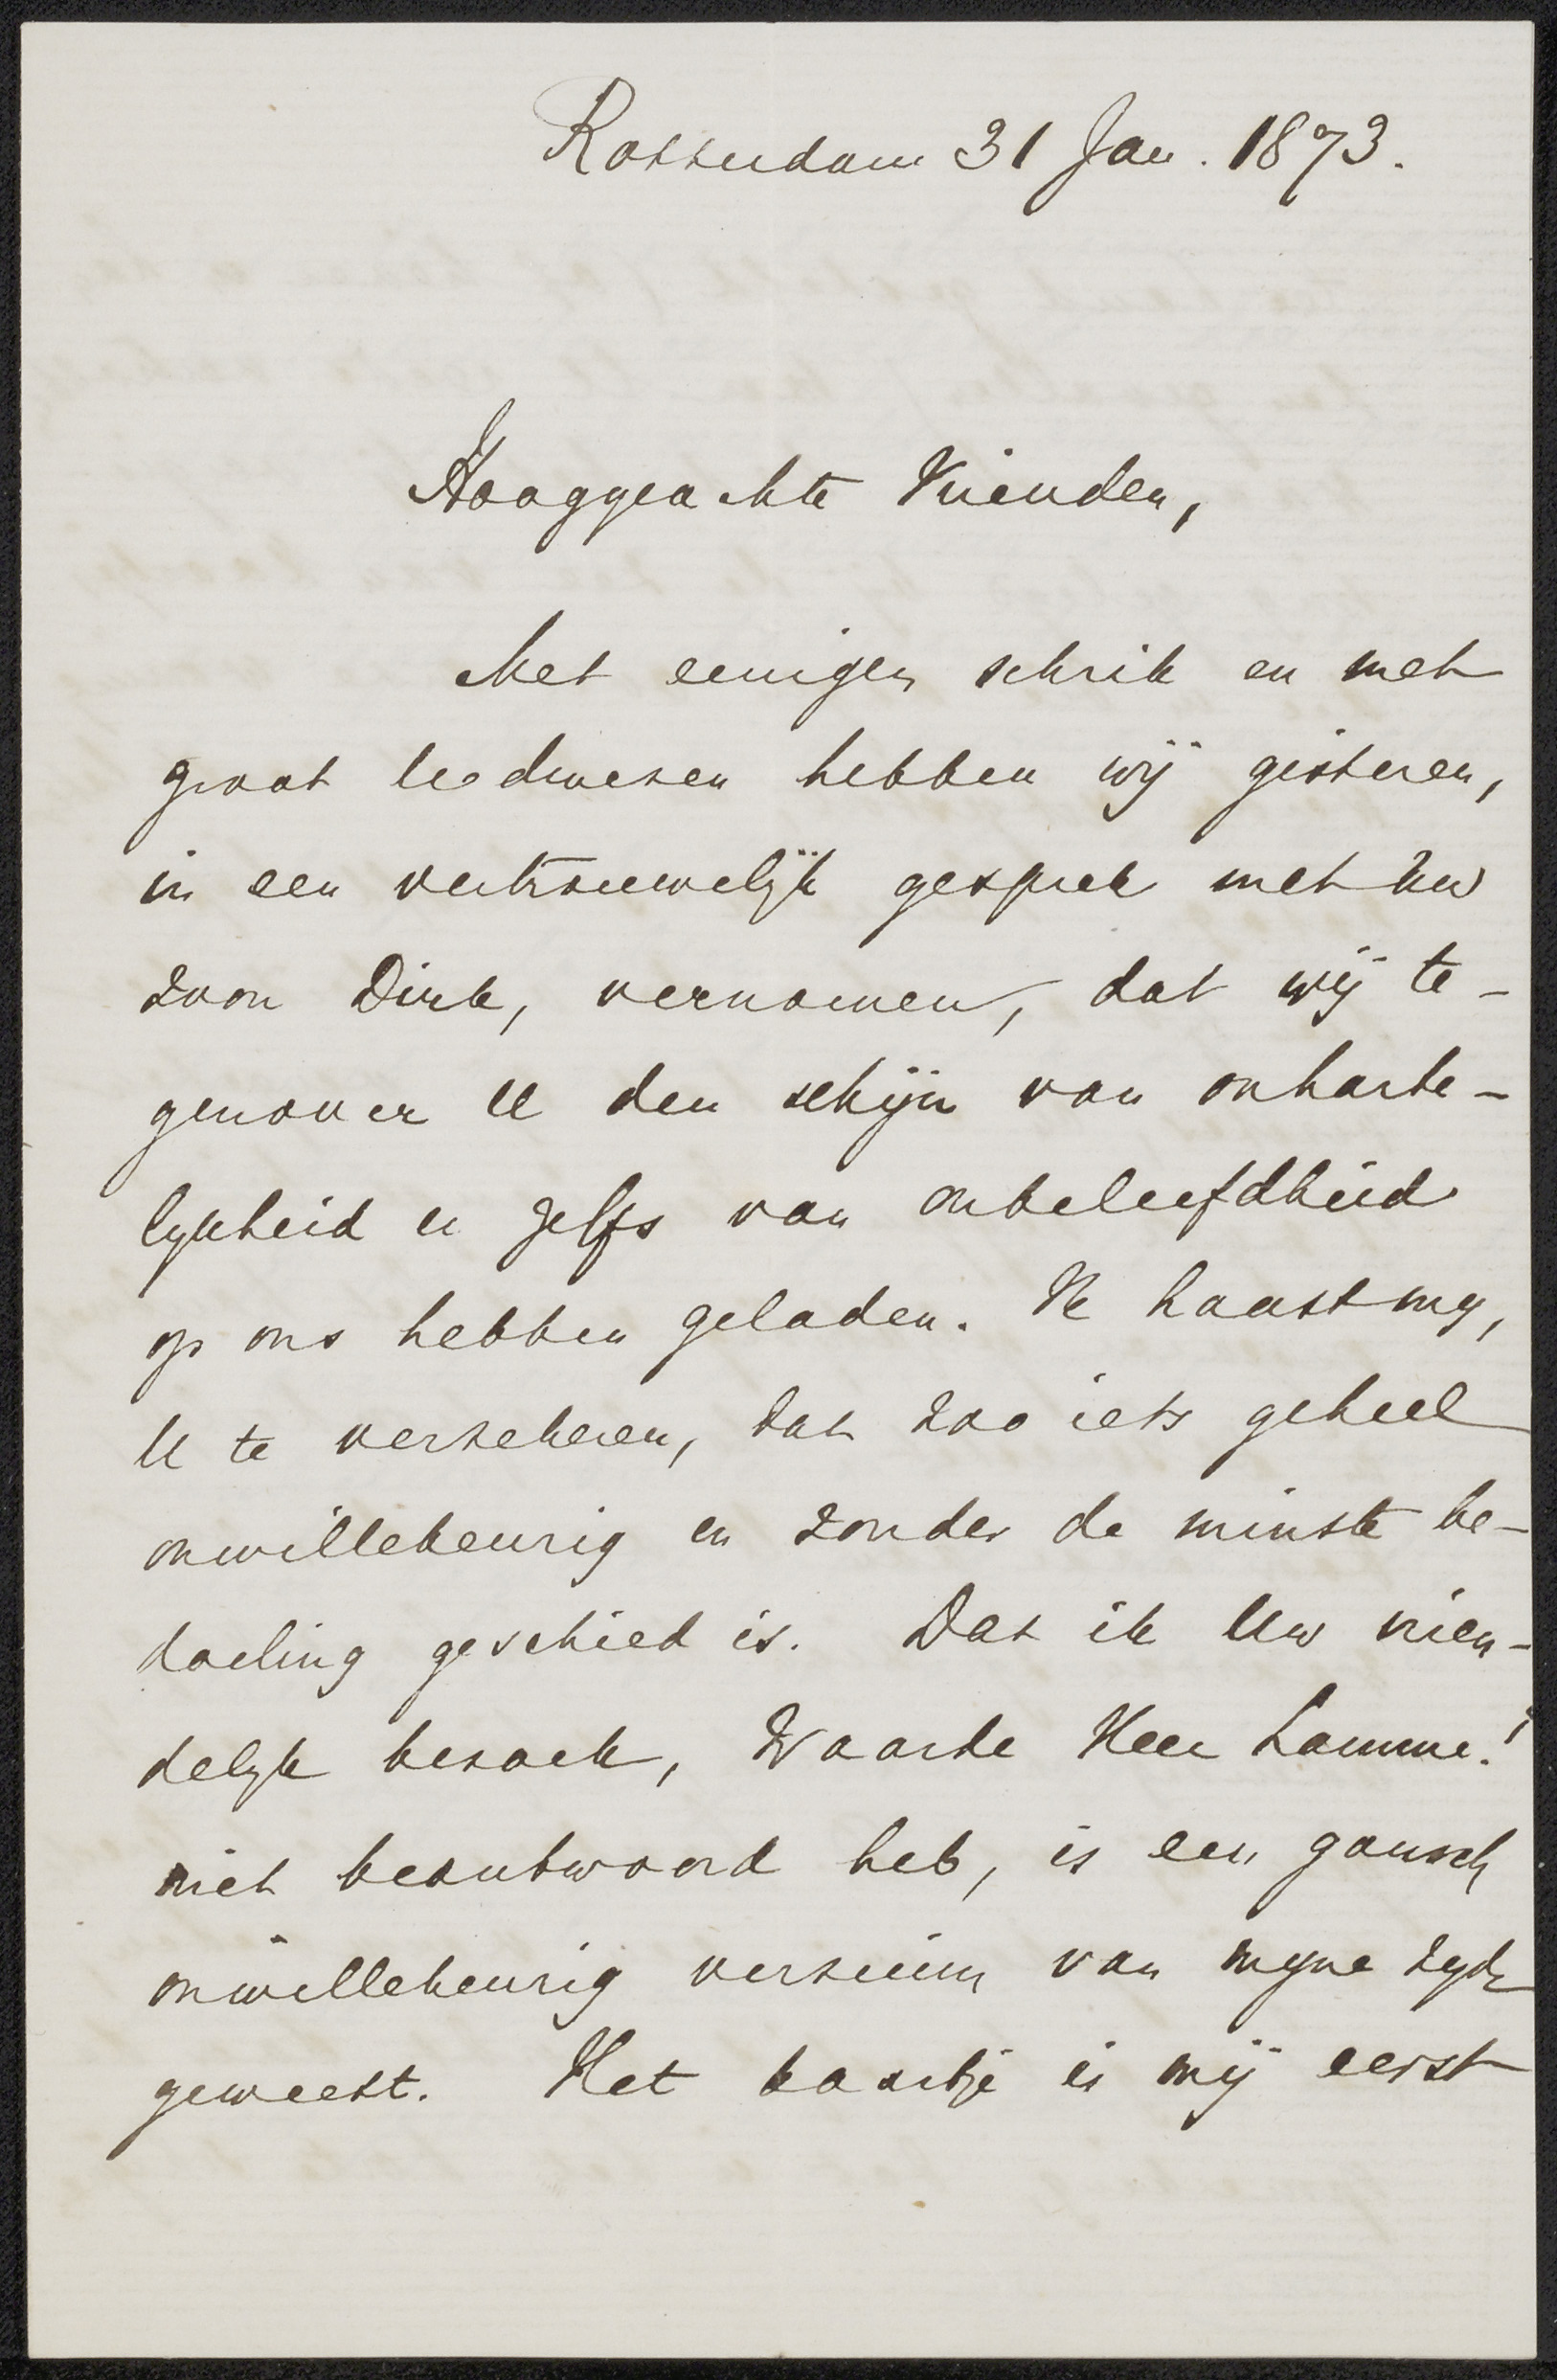 Rotterdam 31 Jan. 1873.
Hooggeachte Vrienden,
Met eenigen schrik en met
groot leedwesen hebben wij gisteren,
in een vertrouwelijk gesprek met Uw
zoon Dirk, vernomen, dat wij te-
genover U den schijn van onharte-
lykheid en zelfs van onbeleefdheid
op ons hebben geladen. Ik haast my,
U te verzekeren, dat zoo iets geheel
onwillekeurig en zonder de minste be-
doeling geschied is. Dat ik Uw vrien-
delyk bezoek, Waarde Heer Lamme!
niet beantwoord heb, is een gansch
onwillekeurig verzuim van myne zyde
geweest. Het kaartje is mij eerst